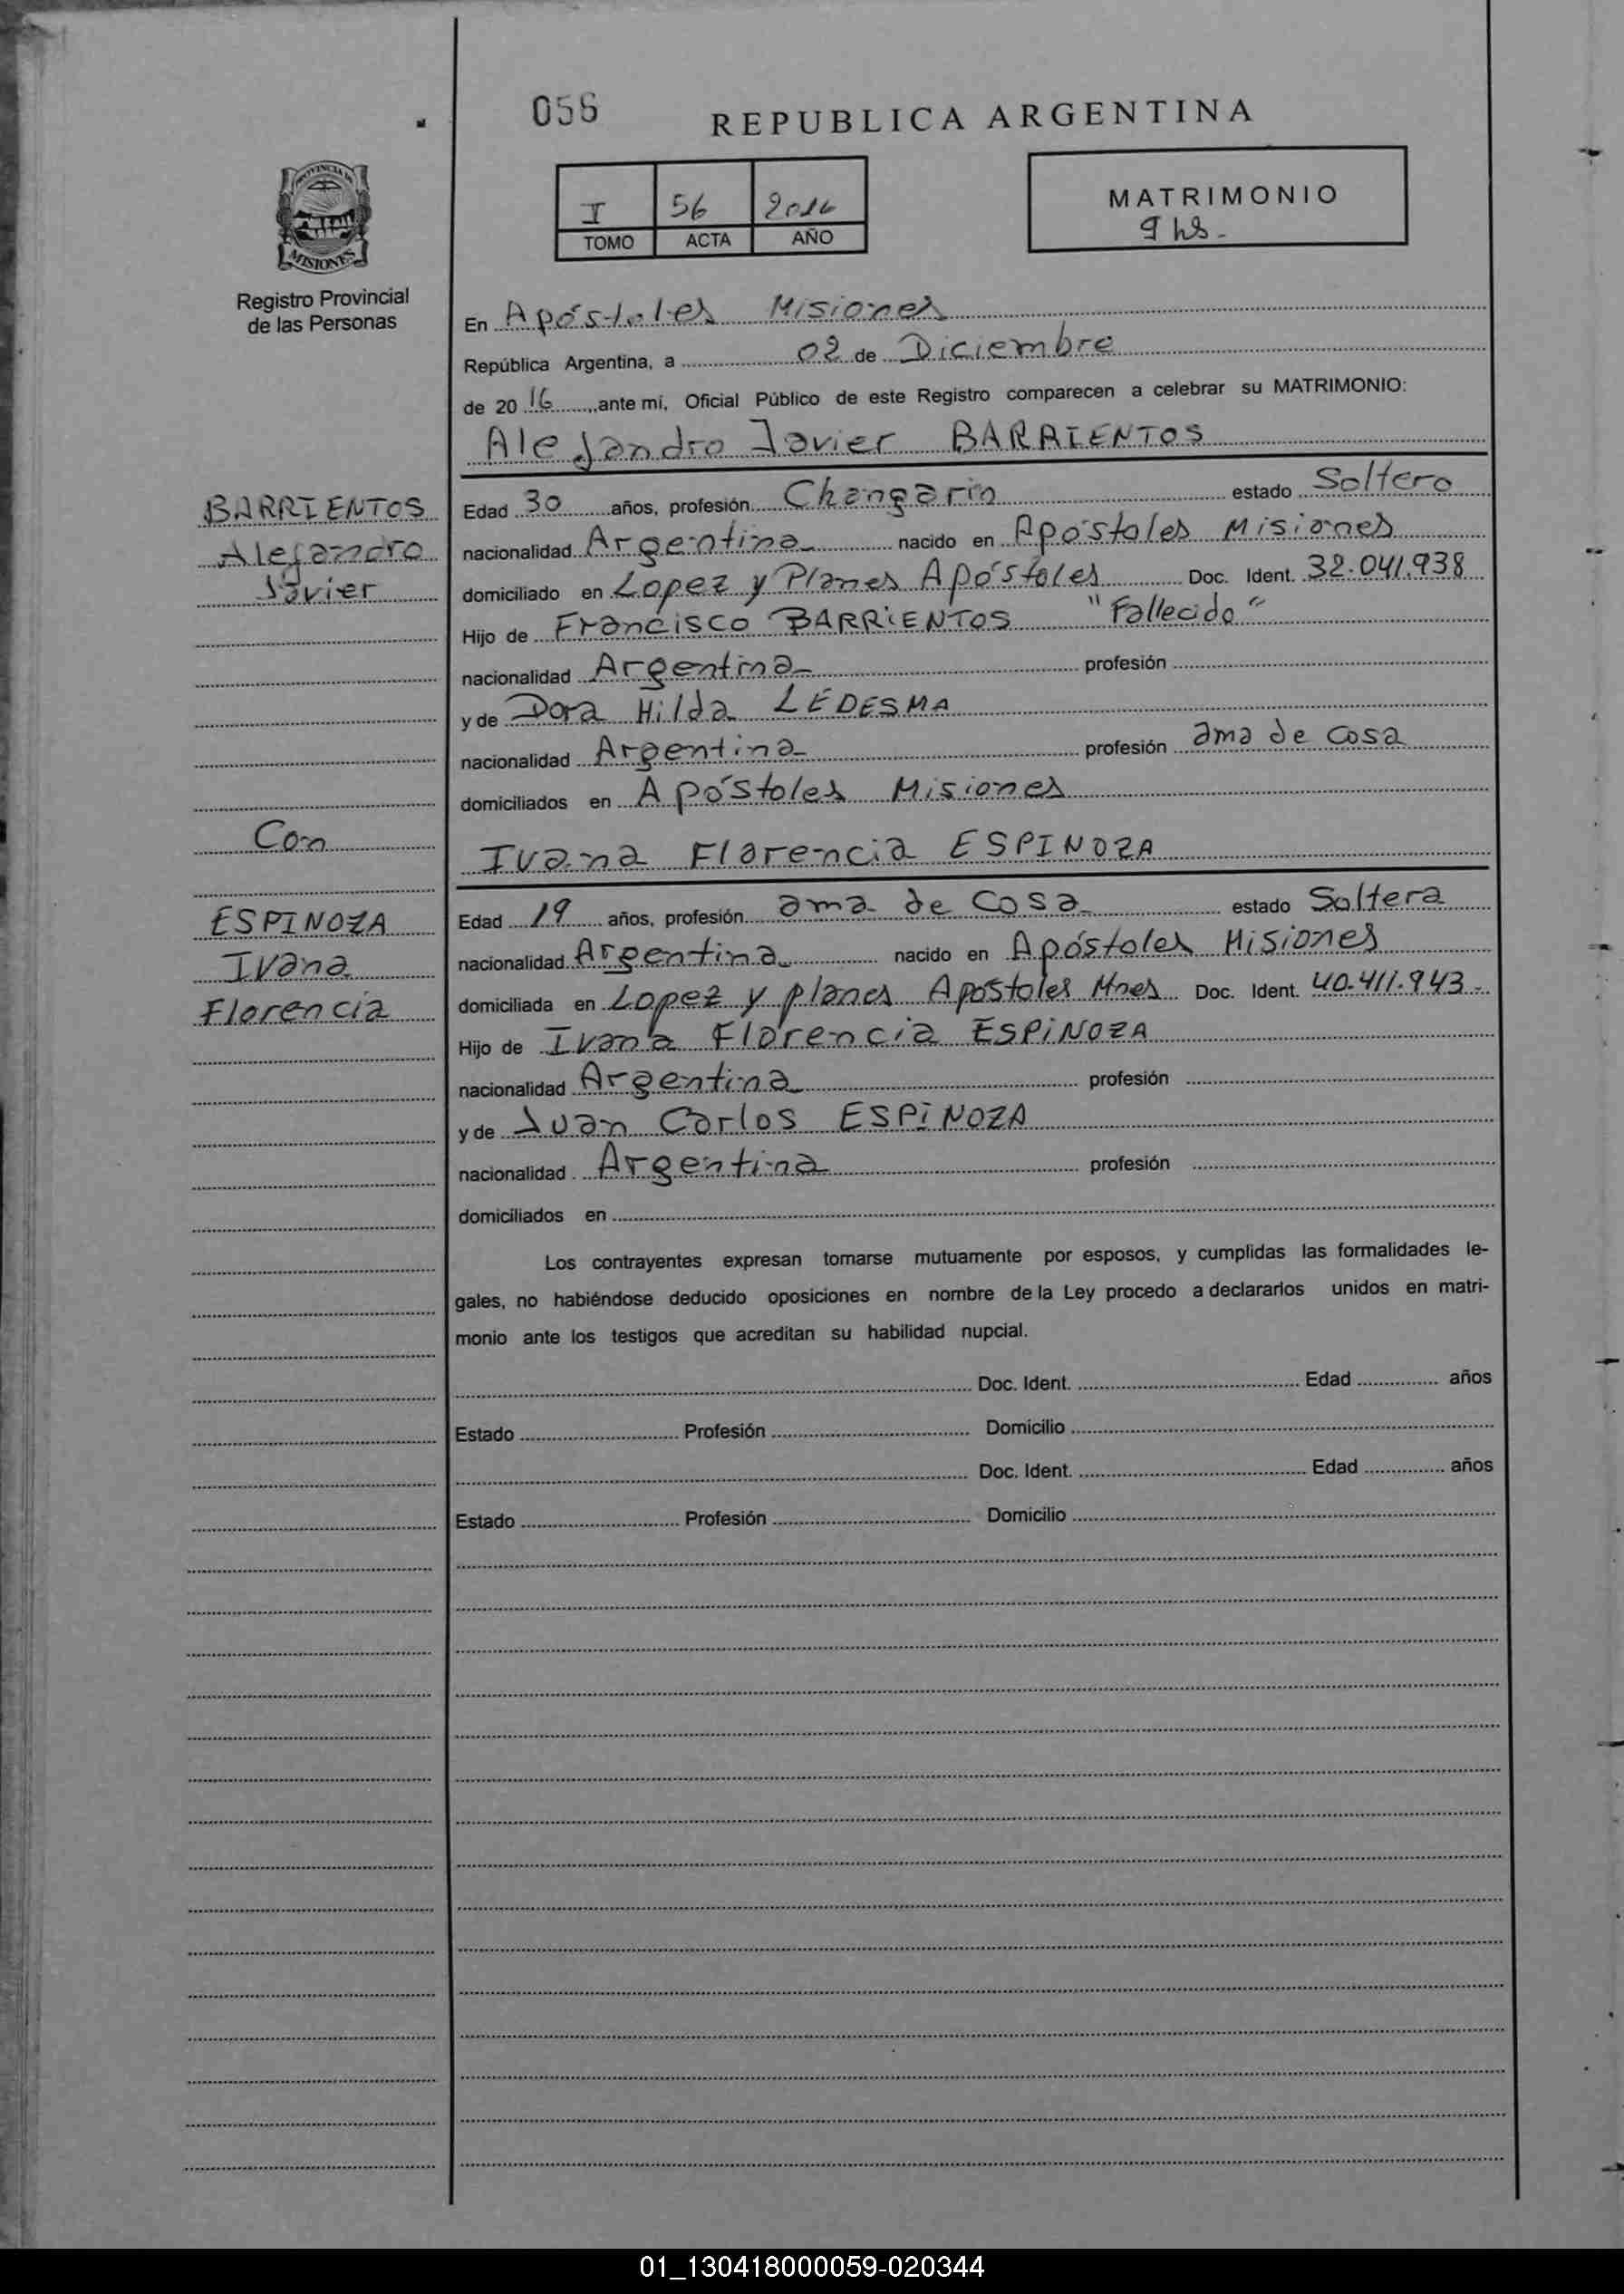 056
REPUBLICA ARGENTINA
I 56 2016
TOMO ACTA AÑO
MATRIMONIO
9 hs.
PROVINCIA DE
MISIONES
Registro Provincial
de las Personas
En Apóstoles Misiones
República Argentina, a 02 de Diciembre
de 2016 ante mí, Oficial Público de este Registro comparecen a celebrar su MATRIMONIO:
Alejandro Javier BARRIENTOS
BARRIENTOS
Alejandro
Javier
Edad 30 años, profesión Changarin estado Soltero
nacionalidad Argentina nacido en Apóstoles Misiones
domiciliado en Lopez y Planes Apóstoles Doc. Ident. 32.041.938
Hijo de Francisco BARRIENTOS "Fallecido"
nacionalidad Argentina profesión
y de Dora Hilda LEDESMA
nacionalidad Argentina profesión ama de casa
domiciliados en Apóstoles Misiones
Con
Ivana Florencia ESPINOZA
ESPINOZA
Ivana
Florencia
Edad 19 años, profesión ama de casa estado Soltera
nacionalidad Argentina nacido en Apóstoles Misiones
domiciliada en Lopez y planes Apostoles Mnes Doc. Ident. 40.411.943-
Hijo de Ivana Florencia ESPINOZA
nacionalidad Argentina profesión
y de Juan Carlos ESPINOZA
nacionalidad Argentina profesión
domiciliados en
Los contrayentes expresan tomarse mutuamente por esposos, y cumplidas las formalidades le-
gales, no habiéndose deducido oposiciones en nombre de la Ley procedo a declararlos unidos en matri-
monio ante los testigos que acreditan su habilidad nupcial.
Doc. Ident. Edad años
Estado Profesión Domicilio
Doc. Ident. Edad años
Estado Profesión Domicilio
01_130418000059-020344